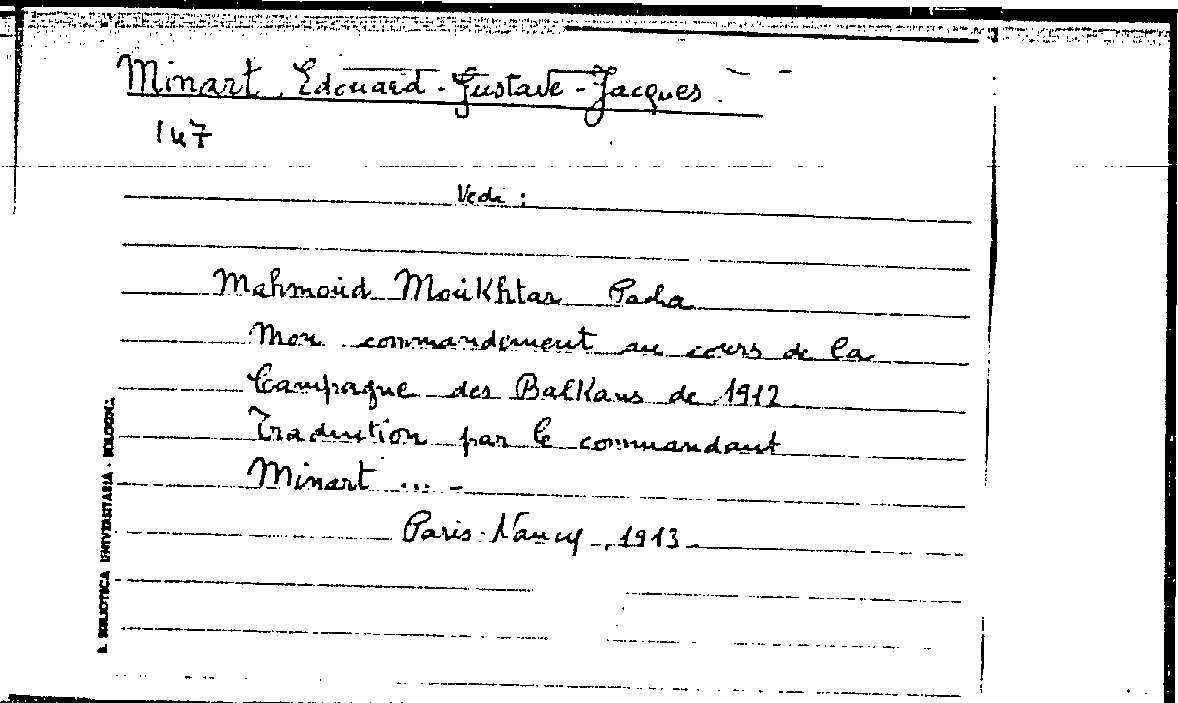 Minart, Edouard-Gustave-Jacques.
147
Vedi:
Mahmoûd Moûkhtar Pacha
Mon commandement au cours de la
Campagne des Balkans de 1912
Traduction par le commandant
Minart ... -
Paris-Nancy, 1913
R. BIBLIOTECA UNIVERSITARIA - BOLOGNA